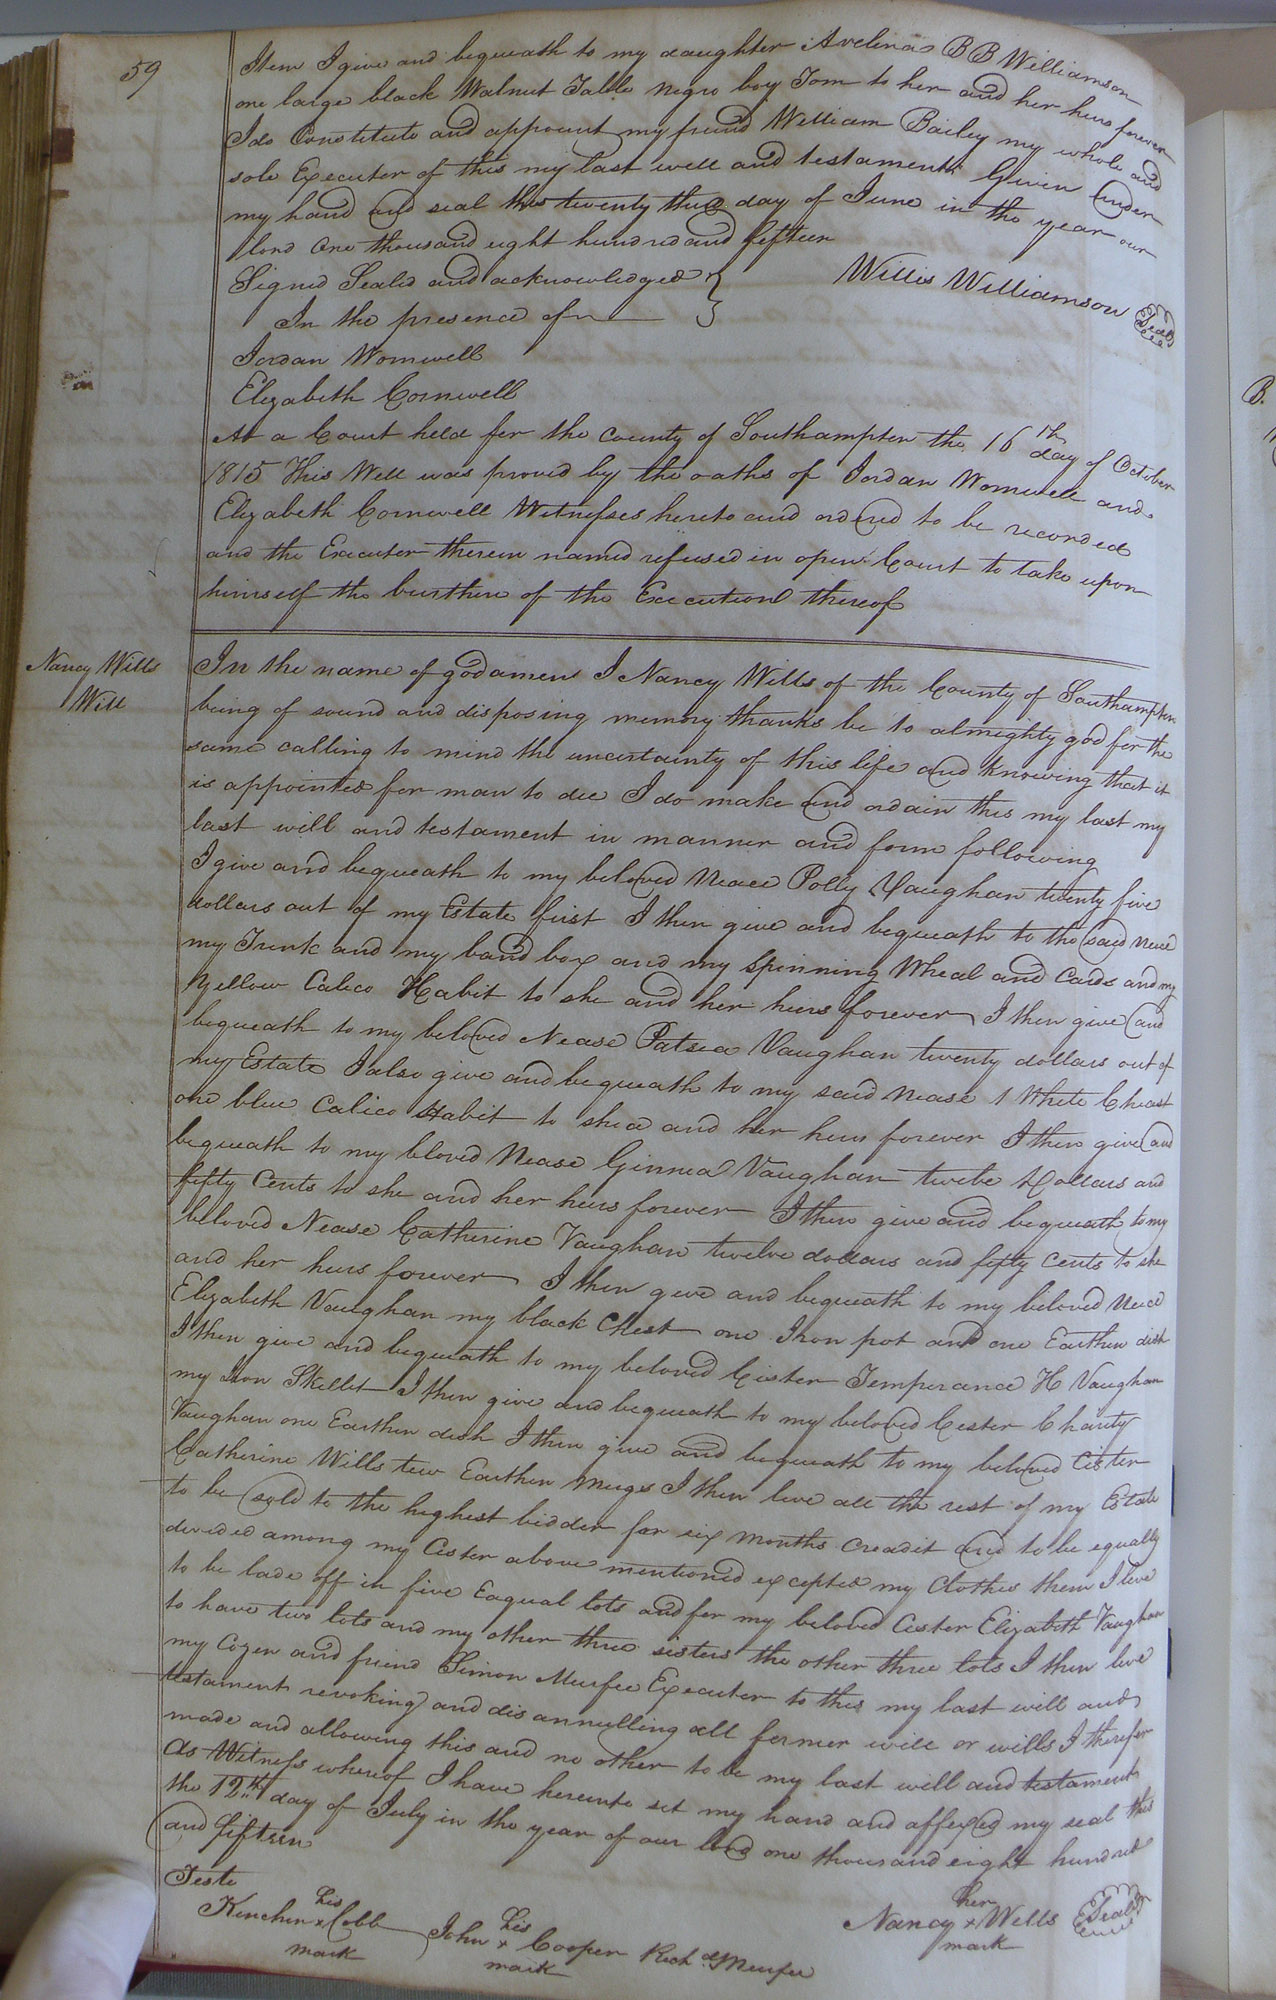 59
Item I give and bequeath to my daughter Avelina B B Williamson
one large black Walnut Table negro boy Tom to her and her heirs forever
I do Constitute and appoint my friend William Bailey my whole and
sole Executor of this my last will and testament. Given under
my hand and seal this twenty three day of June in the year our
lord One thousand eight hundred and fifteen
Signed Sealed and acknowledged } Willis Williamson Seal
In the presence of
Jordan Womwell
Elizabeth Cornwell
At a Court held for the County of Southampton the 16th day of October
1815 This Will was proved by the oaths of Jordan Womwell and
Elizabeth Cornwell Witnesses hereto and ordered to be recorded
and the Executor therein named refused in open Court to take upon
himself the burthen of the Execution thereof
Nancy Wills
Will
In the name of god amen I Nancy Wills of the County of Southampton
being of sound and disposing memory thanks be to almighty god for the
same calling to mind the uncertainty of this life and knowing that it
is appointed for man to die I do make and ordain this my last my
last will and testament in manner and form following
I give and bequeath to my beloved Neace Polly Vaughan twenty five
dollars out of my Estate first I then give and bequeath to the said neice
my Trunk and my band box and my Spinning Wheal and Cards and my
Yellow Calico Habit to she and her heirs forever I then give and
bequeath to my beloved Nease Patsea Vaughan twenty dollars out of
my Estate I also give and bequeath to my said Nease 1 White Cheast
one blue Calico Habit to shea and her heirs forever I then give and
bequeath to my bloved Nease Ginnea Vaughan twelve Dollars and
fifty Cents to she and her heirs forever I then give and bequeath to my
beloved Nease Catherine Vaughan twelve dollars and fifty Cents to she
and her heirs forever I then give and bequeath to my beloved neice
Elizabeth Vaughan my black Chest one Iron pot and one Earthen dish
I then give and bequeath to my beloved Cister Temperance H Vaughan
my Iron Skellet I then give and bequeath to my beloved Cester Charity
Vaughan one Earthen dish I then give and bequeath to my beloved Cister
Catherine Wills tew Earthen Mugs I then leve all the rest of my Estate
to be sold to the highest bidder for six months creadit and to be equally
devided among my Cister above mentioned excepted my Clothes them I leve
to be lade off in five Eaqual lots and for my beloved Cister Elizabeth Vaughan
to have two lots and my other three sisters the other three lots I then leve
my Cozen and friend Simon Murfee Executer to this my last will and
testament revoking and disannulling all former will or wills I therefor
made and allowing this and no other to be my last will and testament
As Witness whereof I have hereunto set my hand and affixed my seal this
the 12th day of July in the year of our lord one thousand eight hundred
and fifteen
Teste
Kinchen his x mark Cobb John his x mark Cooper Richd Murfee Nancy her x mark Wills Seal